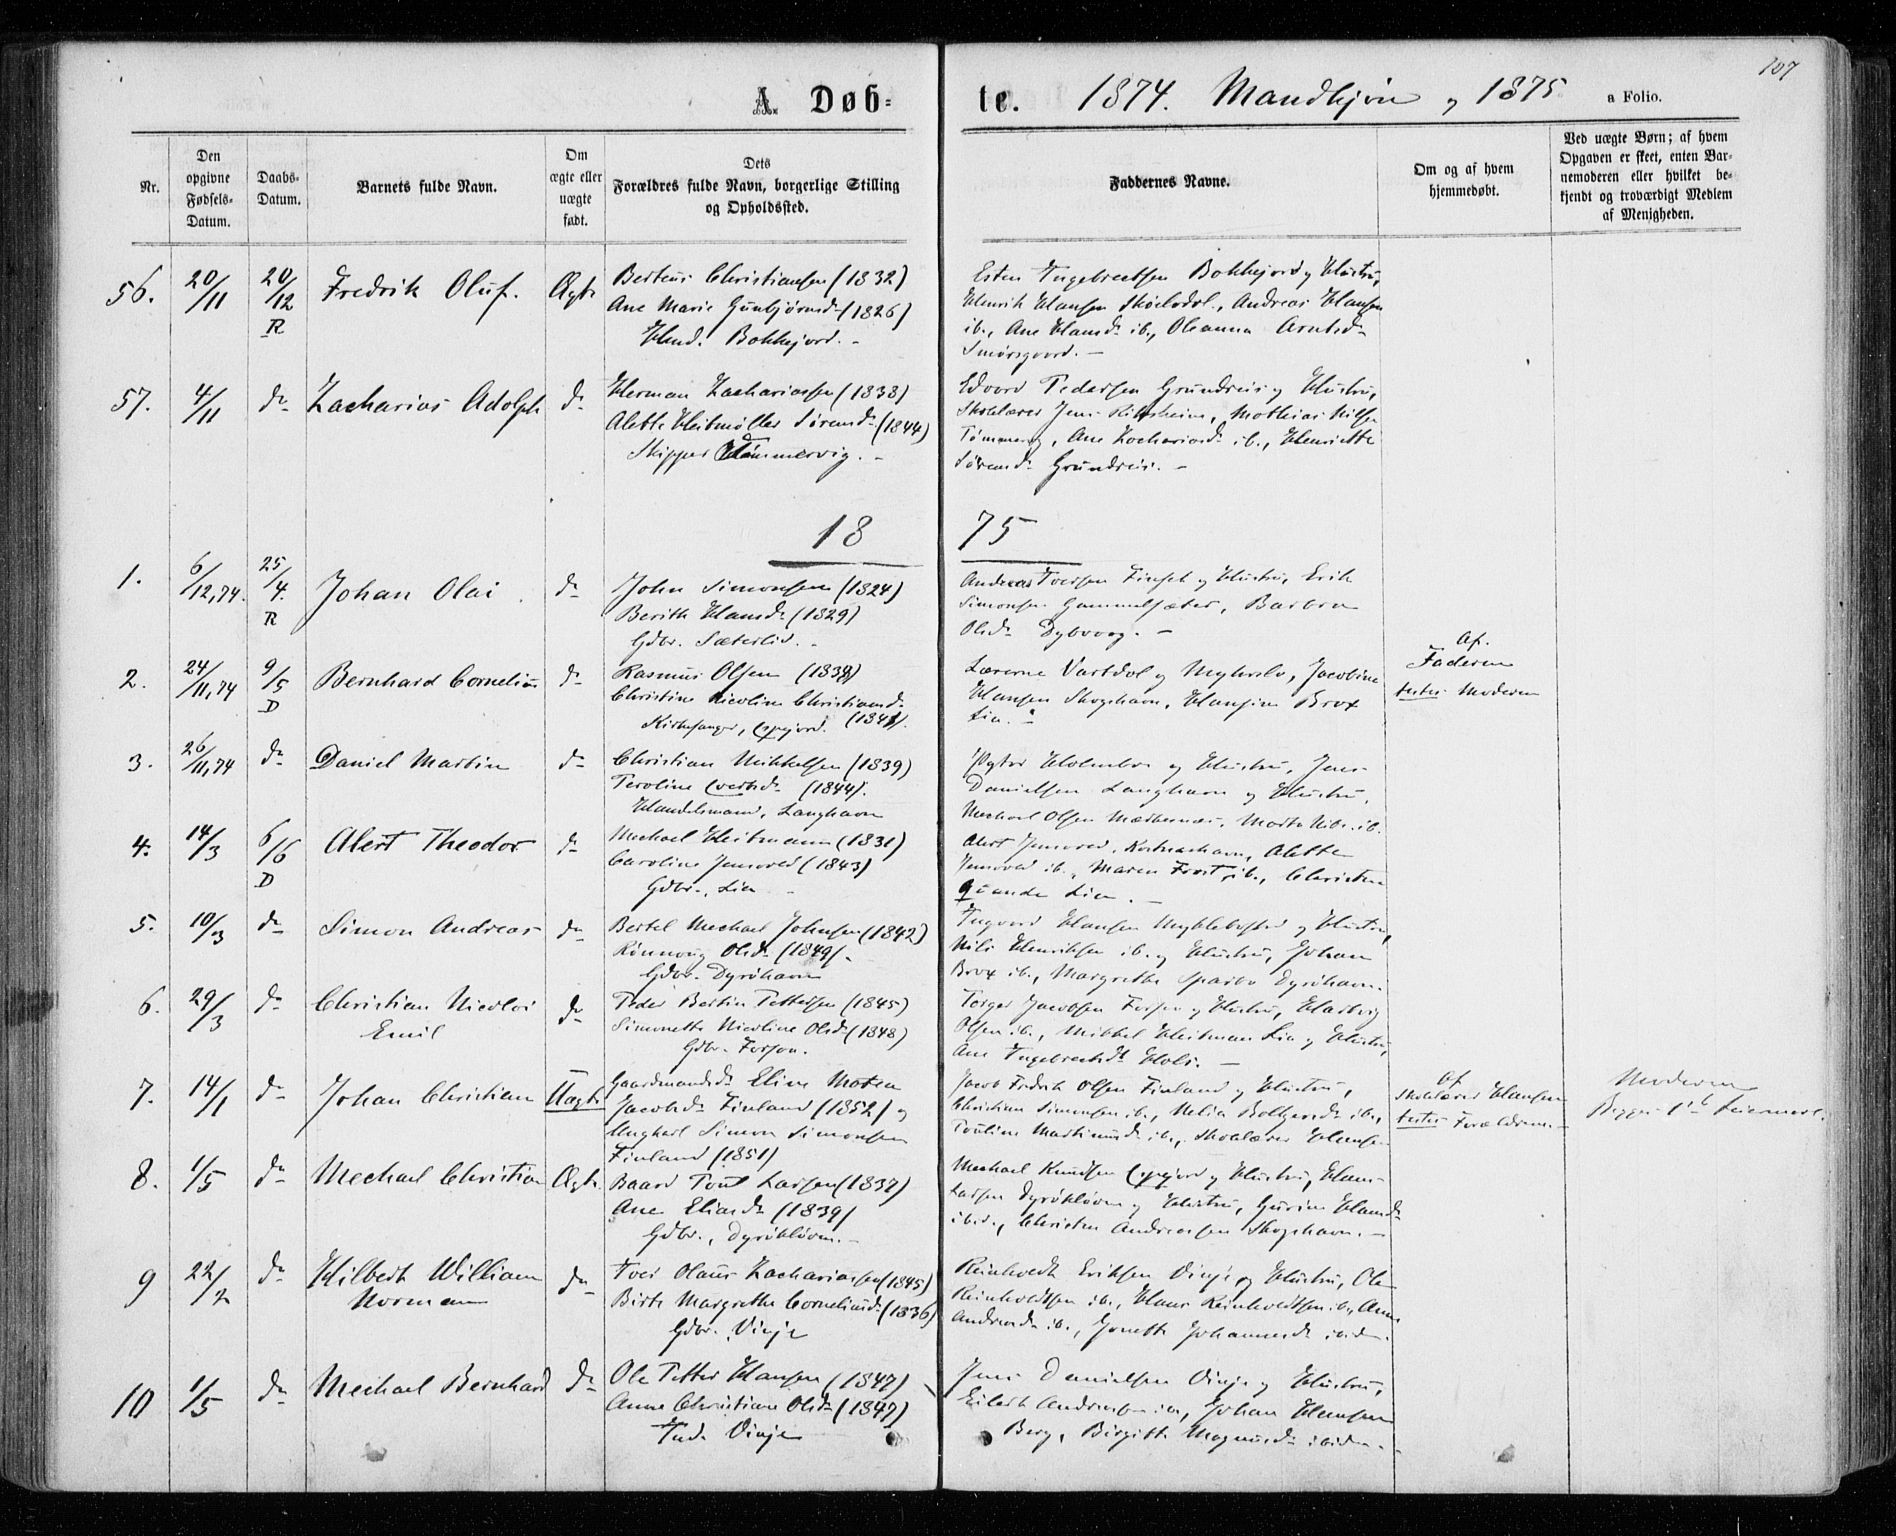 107
A. Døb- te. 1874. Mandkjøn og 1875 a Folio.
Nr.
Den opgivne Fødsels-Datum.
Daabs-Datum.
Barnets fulde Navn.
Om ægte eller uægte født.
Dets Forældres fulde Navn, borgerlige Stilling og Opholdssted.
Faddernes Navne.
Om og af hvem hjemmedøbt.
Ved uægte Børn; af hvem Opgaven er skeet, enten Barnemoderen eller hvilket bekjendt og troværdigt Medlem af Menigheden.
56. 20/11 20/12 R Fredrik Oluf. Ægte
Berteus Christiansen (1832)
Ane Marie Gunbjørnsd. (1826)
Ind. Bokkejord.
Esten Ingebrectsen Bokkejord og Hustru,
Henrik Hansen Skoelvdal, Andreas Hansen
ib., Ane Hansd. ib., Oleanna Arntsd.
Smørsgaard.
57. 4/11 do Zacharias Adolph do
Herman Zachariassen (1838)
Alette Heitmøller Sørensd. (1844)
Skipper Tømmervig.
Edvard Pedersen Grundreis og Hustru,
Skolelærer Jens , Mathias Nilsen
Tømmervig, Ane Zachariasd. ib., Henriette
Sørensd. Grundreis.
18 75
1. 6/12,74. 25/4. R Johan Olai. do
John Simonsen (1824)
Berith Hansd. (1829)
Gdbr. Sæterlid.
Andreas Iversen Finset og Hustru, Erik
Simonsen Gammelsæter, Barbra
Olsd. Dybvaag.
2. 24/11,74 9/5 D Bernhard Cornelius do
Rasmus Olsen (1839)
Christine Nicoline Christiansd.
Kirkesanger, Espejord. (1841).
Lærerne Vartdal og Myhrslo, Jacobine
Hansen Skogshavn, Hansine Brox
Lia.
Af. Faderen
testes Moderen
3. 26/11,74 do Daniel Martin do
Christian Mikkelsen (1839)
Peroline Evertsd. (1844).
Handelsmand, Langhavn
Peter Holmbo og Hustru, Jens
Danielsen Langhavn og Hustru,
Mechael Olsen , Marta Nils. ib.
4. 14/3 6/6 D Alert Theodor do
Mechael Heitmann (1831)
Caroline Jensvold (1843)
Gdbr., Lia
Alert Jensvold, Kastneshavn, Alette
Jensvold ib., Maren Frost, ib., Christen
Qvande Lia.
5. 10/3 do Simon Andreas do
Bertel Mechael Johnsen (1842)
Rønnoug Olsd. (1849).
Gdbr. Dyrøhavn
Ingvard Hansen Myklebostad og Hustru,
Nils Henriksen ib. og Hustru, Johan
Brox ib., Margrethe Sparbo Dyrøhavn.
6. 29/3 do Christian Nicolai Emil do
Peder Bertin Pettersen (1845)
Simonette Nicoline Olsd. (1848)
Gdbr. Forsøen.
Torger Jacobsen Forsøen og Hustru, Hartvig
Olsen ib., Mikkel Heitman Lia og Hustru,
Ane Ingebrectsdt Hals.
7. 14/1 do Johan Christian Uægte
Gaardmandsd. Eline Motea
Jacobsd. Finland (1852) og
Ungkarl Simon Simonsen
Finland (1851)
Jacob Fredrik Olsen Finland og Hustru,
Christian Simonsen ib., Melia Boltzersd. ib.,
Pauline Martinusd. ib., Skolelærer Hansen
Af Skolelærer Hansen
testes Forældrene.
Moderen
Begges 1ste Leiermaal.
8. 1/5 do Mechael Christian Ægte
Baard Poul Larsen (1837)
Ane Eliasd. (1839)
Gdbr., Dyrøkløven.
Mechael Knudsen Espejord og Hustru, Hans
Larsen Dyrøkløven og Hustru, Gurine Hansd.
ibid., Christen Andreassen Skogshavn.
9 22/2 do Hilbert William Norman do
Iver Olaus Zachariassen (1845)
Birte Margrethe Corneliusd. (1836)
Gdbr. Vinje
Reinholdt Eriksen Vinje og Hustru, Ole
Reinholdtsen ib., Hans Reinholdtsen ib., Anne
Andreasd. ib., Jonette Johannesd. ibidem.
10 1/5 do Meihael Bernhard do
Ole Petter Hansen (1847)
Anne Christiane Olsd. (1847)
Ind. Vinje
Jens Danielsen Vinje og Hustru,
Eilert Andreassen ib., Johan Hansen
Berg, Birgitte Magnusd. ibidem.